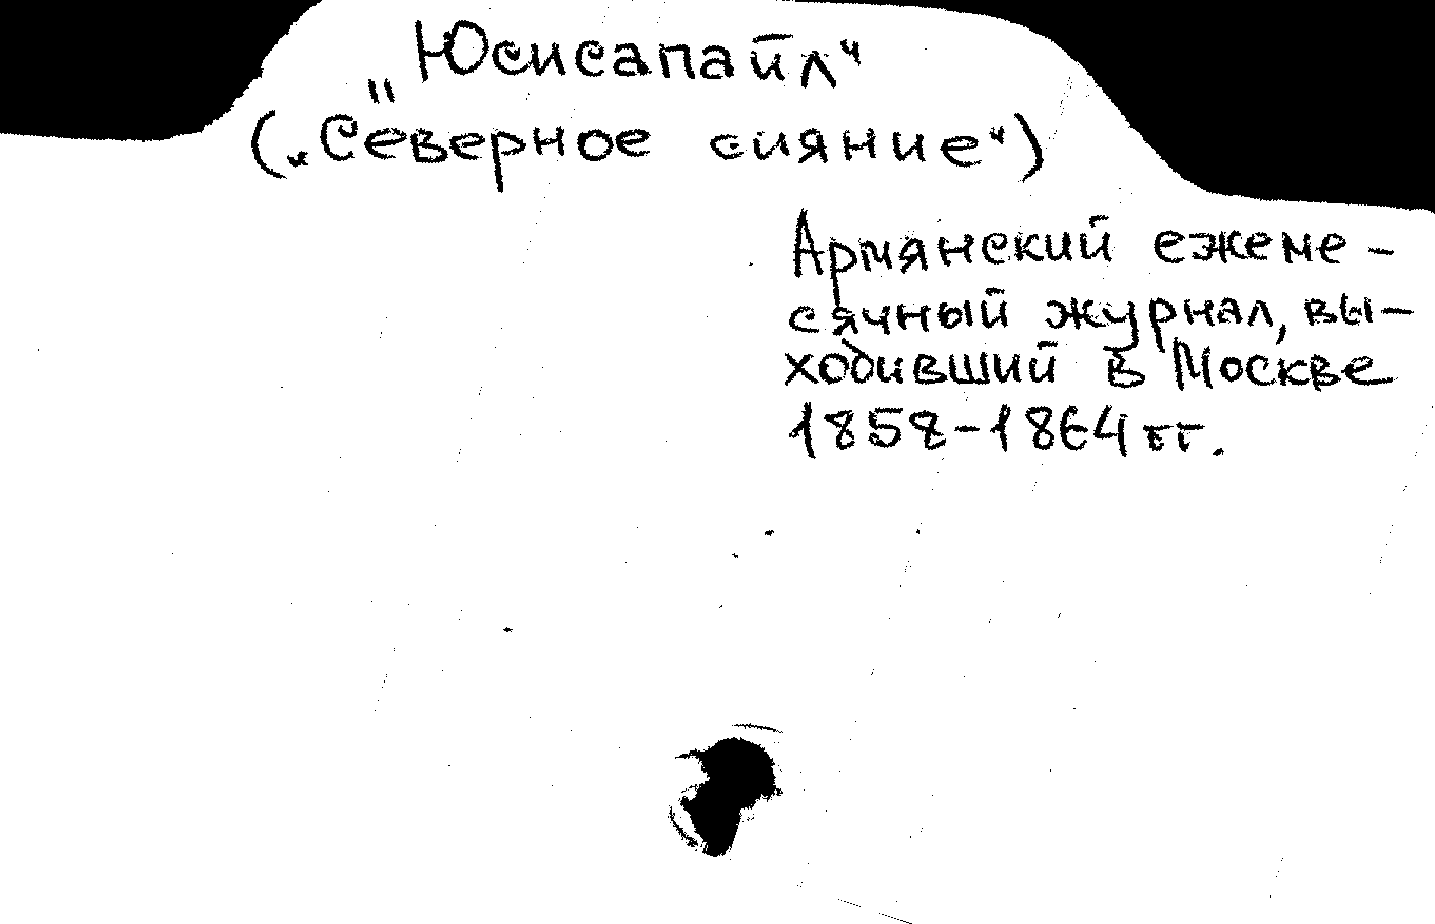 „Юсисапайл“
(„Северное сияние“)
Армянский ежеме-
сячный журнал, вы-
ходивший в Москве
1858-1864 гг.